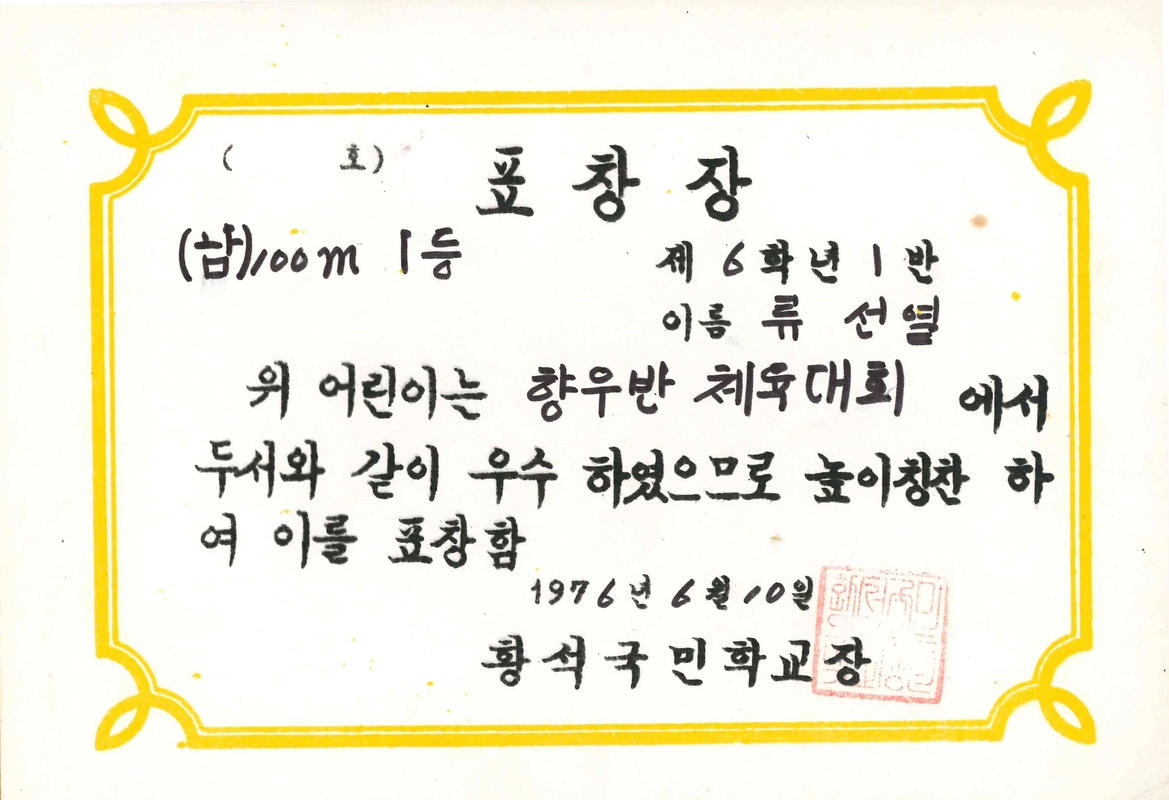 ( 호)
표창장
(남)100m 1등
제 6학년 1반
이름 류 선열
위 어린이는 향우반 체육대회 에서
두서와 같이 우수 하였으므로 높이칭찬 하
여 이를 표창함
1976년 6월 10일
황석국민학교장